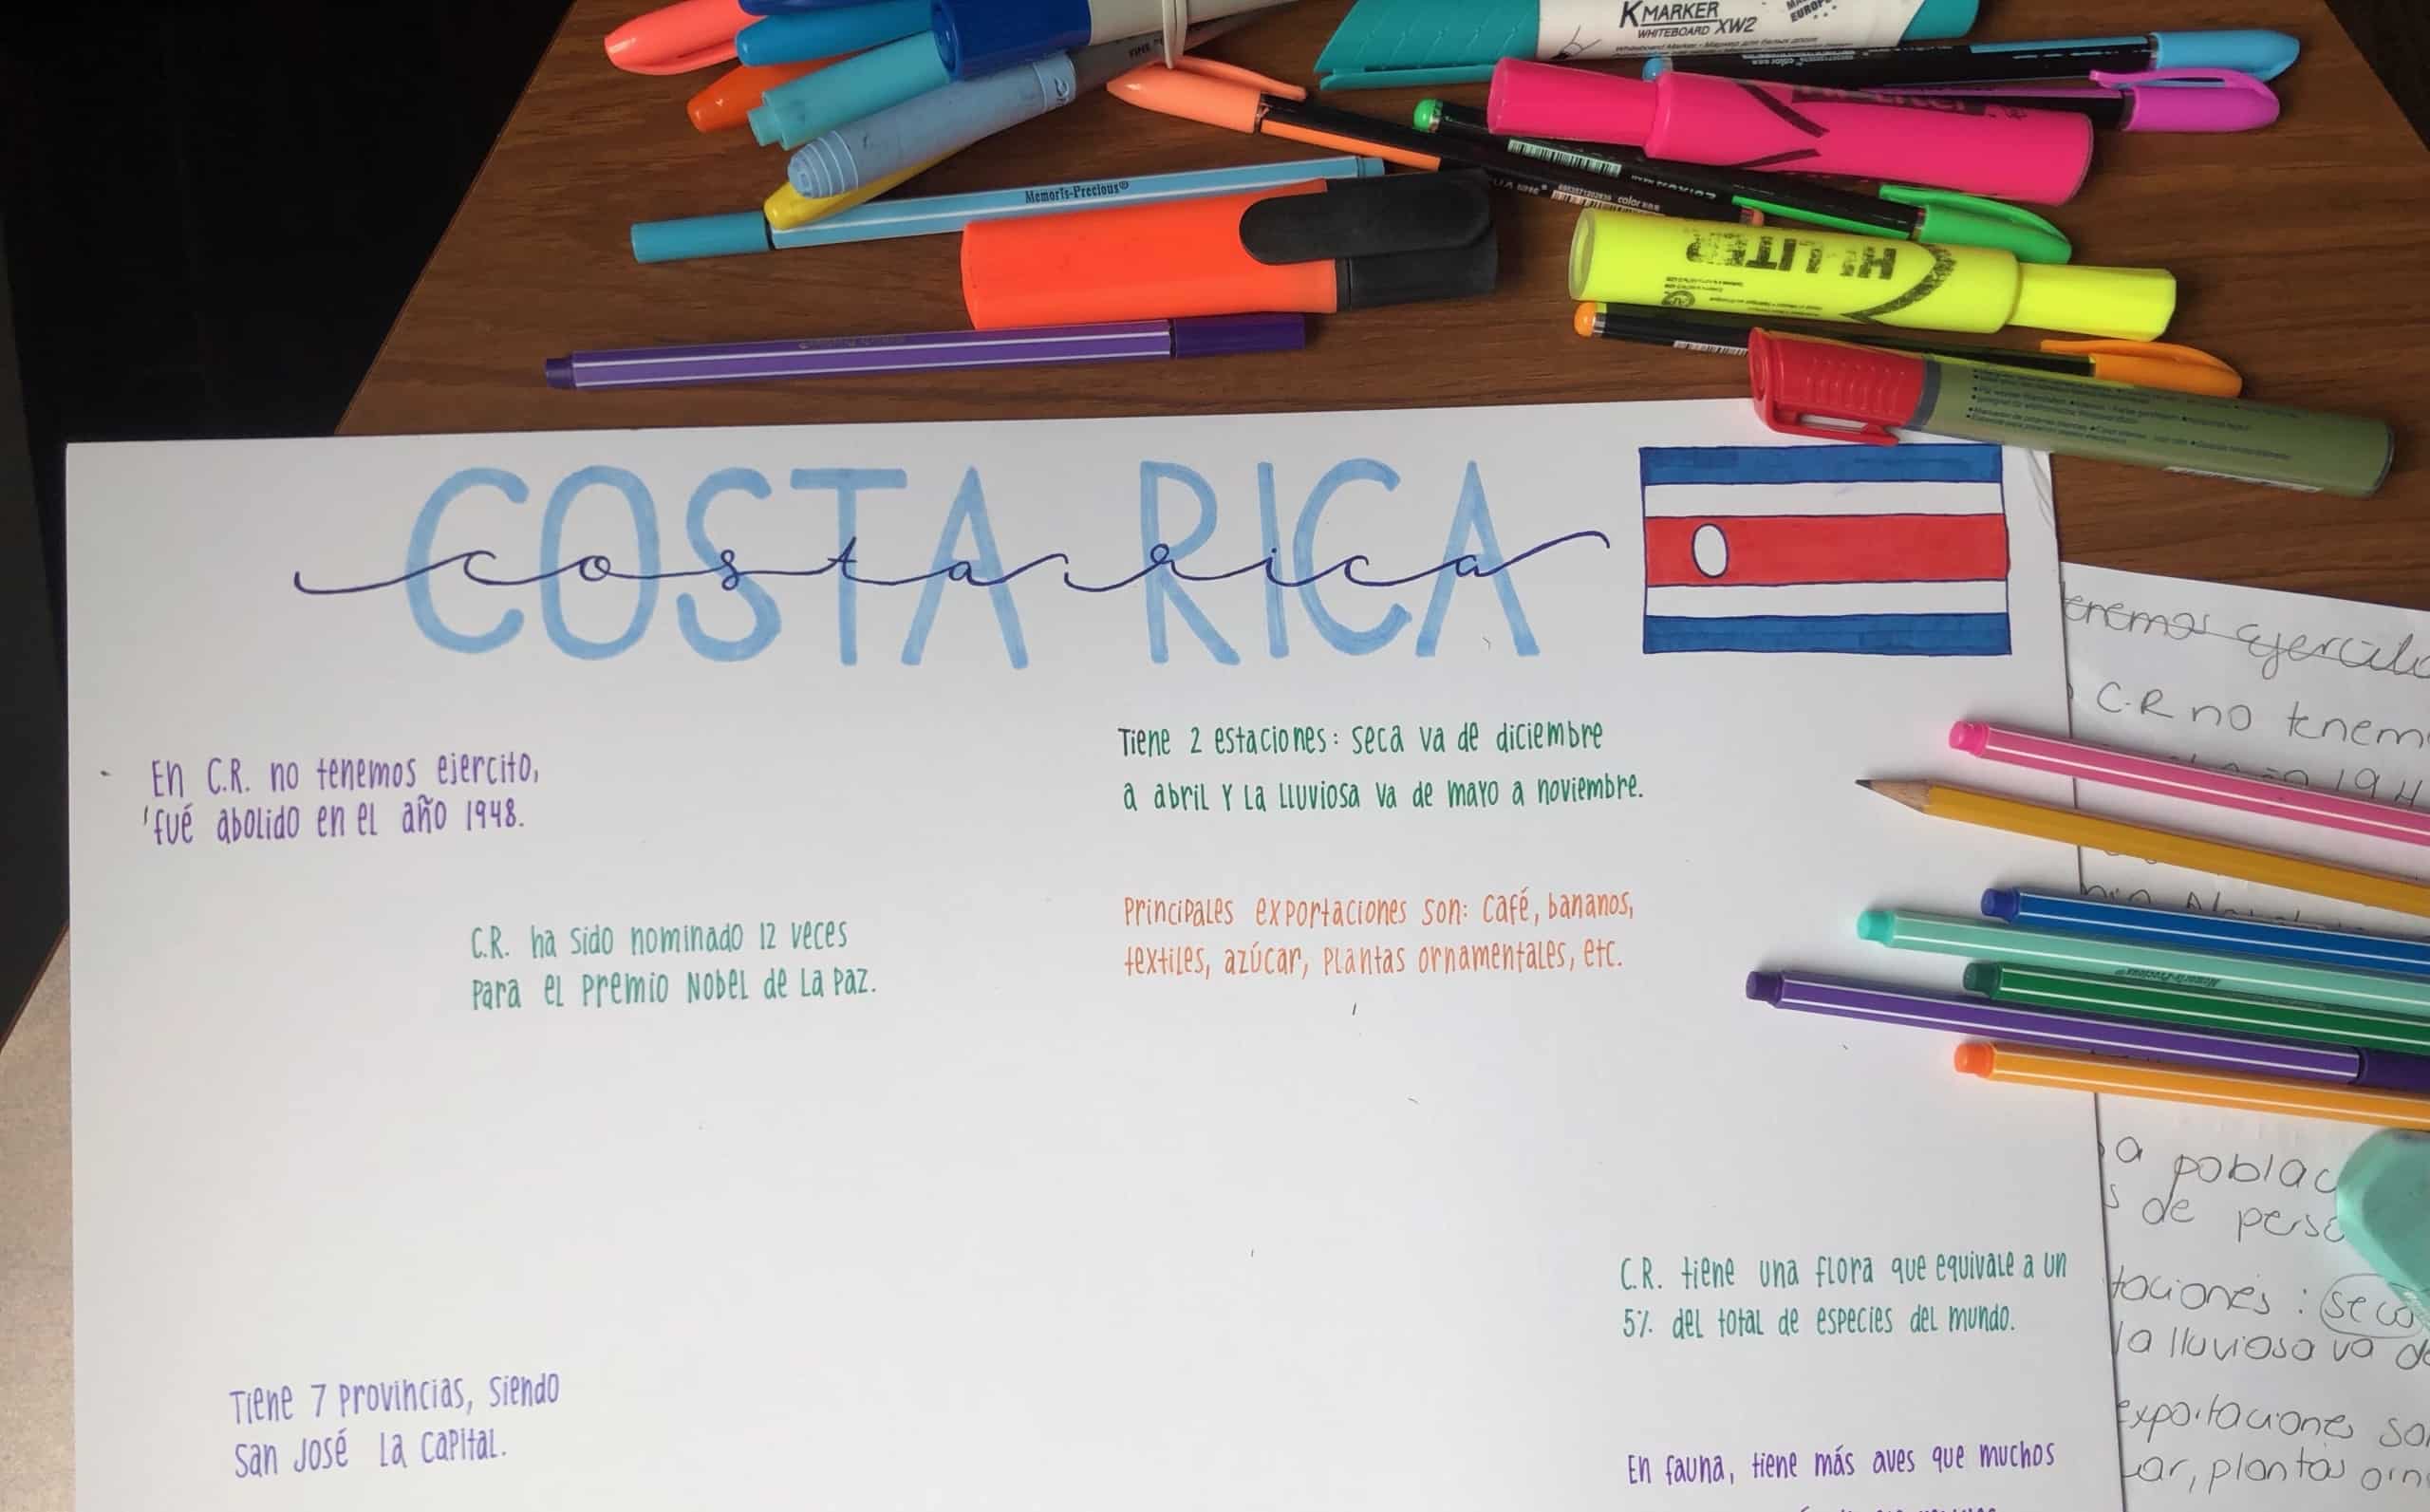 KMARKER
WHITEBOARD XW2
Memoris-Precious®
HI-LITER
COSTA RICA
costa rica
En C.R. no tenemos ejercito,
fué abolido en el año 1948.
C.R. ha sido nominado 12 veces
para el premio Nobel de la paz.
Tiene 2 estaciones: seca va de diciembre
a abril y la lluviosa va de mayo a noviembre.
Principales exportaciones son: café, bananos,
textiles, azúcar, plantas ornamentales, etc.
C.R. tiene una flora que equivale a un
5% del total de especies del mundo.
Tiene 7 provincias, siendo
San José la capital.
En fauna, tiene más aves que muchos
C.R no tenem
a poblac
s de perso
taciones: seca
la lluviosa va de
exportaciones so
ar, plantas orn